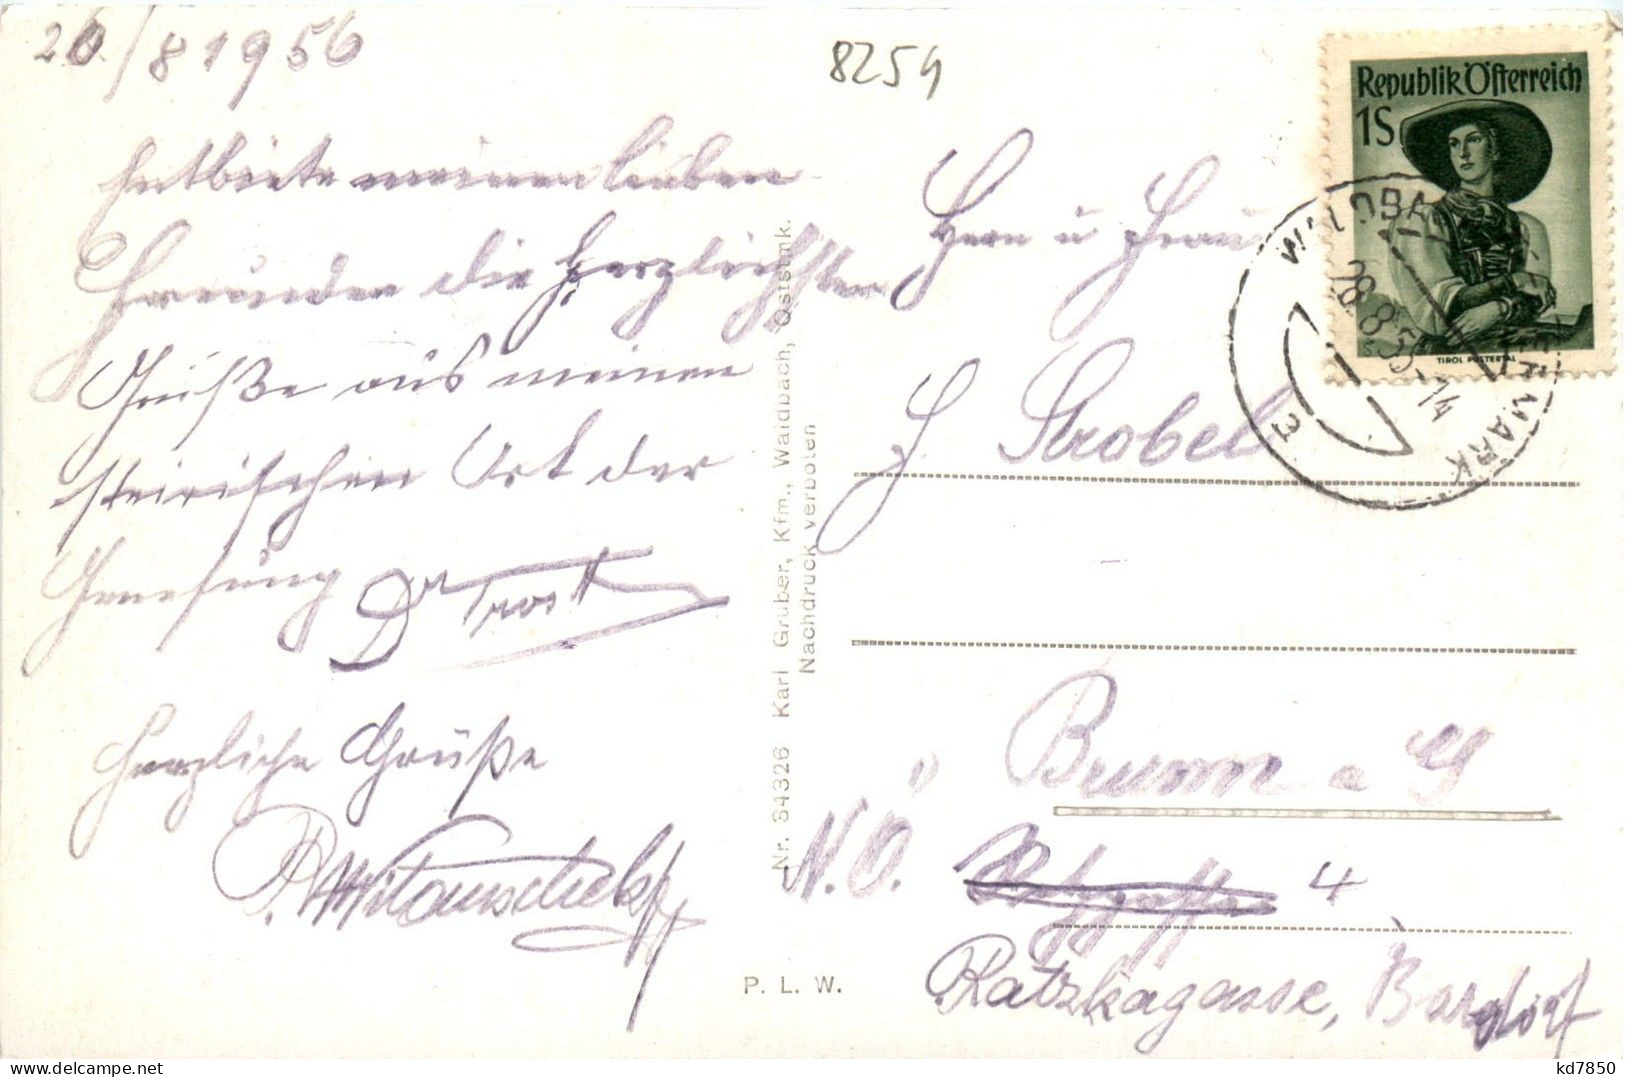 26./8 1956
8254
Entbiete meinen lieben
Freunden die herzlichsten
Grüße aus meinen
steirischen Ort der
Genesung Dr Trost
Herzliche Grüße
Nr. 34326 Karl Gruber, Kfm., Waldbach, Oststmk.
Nachdruck verboten
P. L. W.
Republik Österreich
1S
TIROL PUSTERTAL
WALDBACH STEIERMARK
Herrn u Frau
H. Strobel
Brunn a G
N.Ö. 4
Ratzkagasse,
kd7850